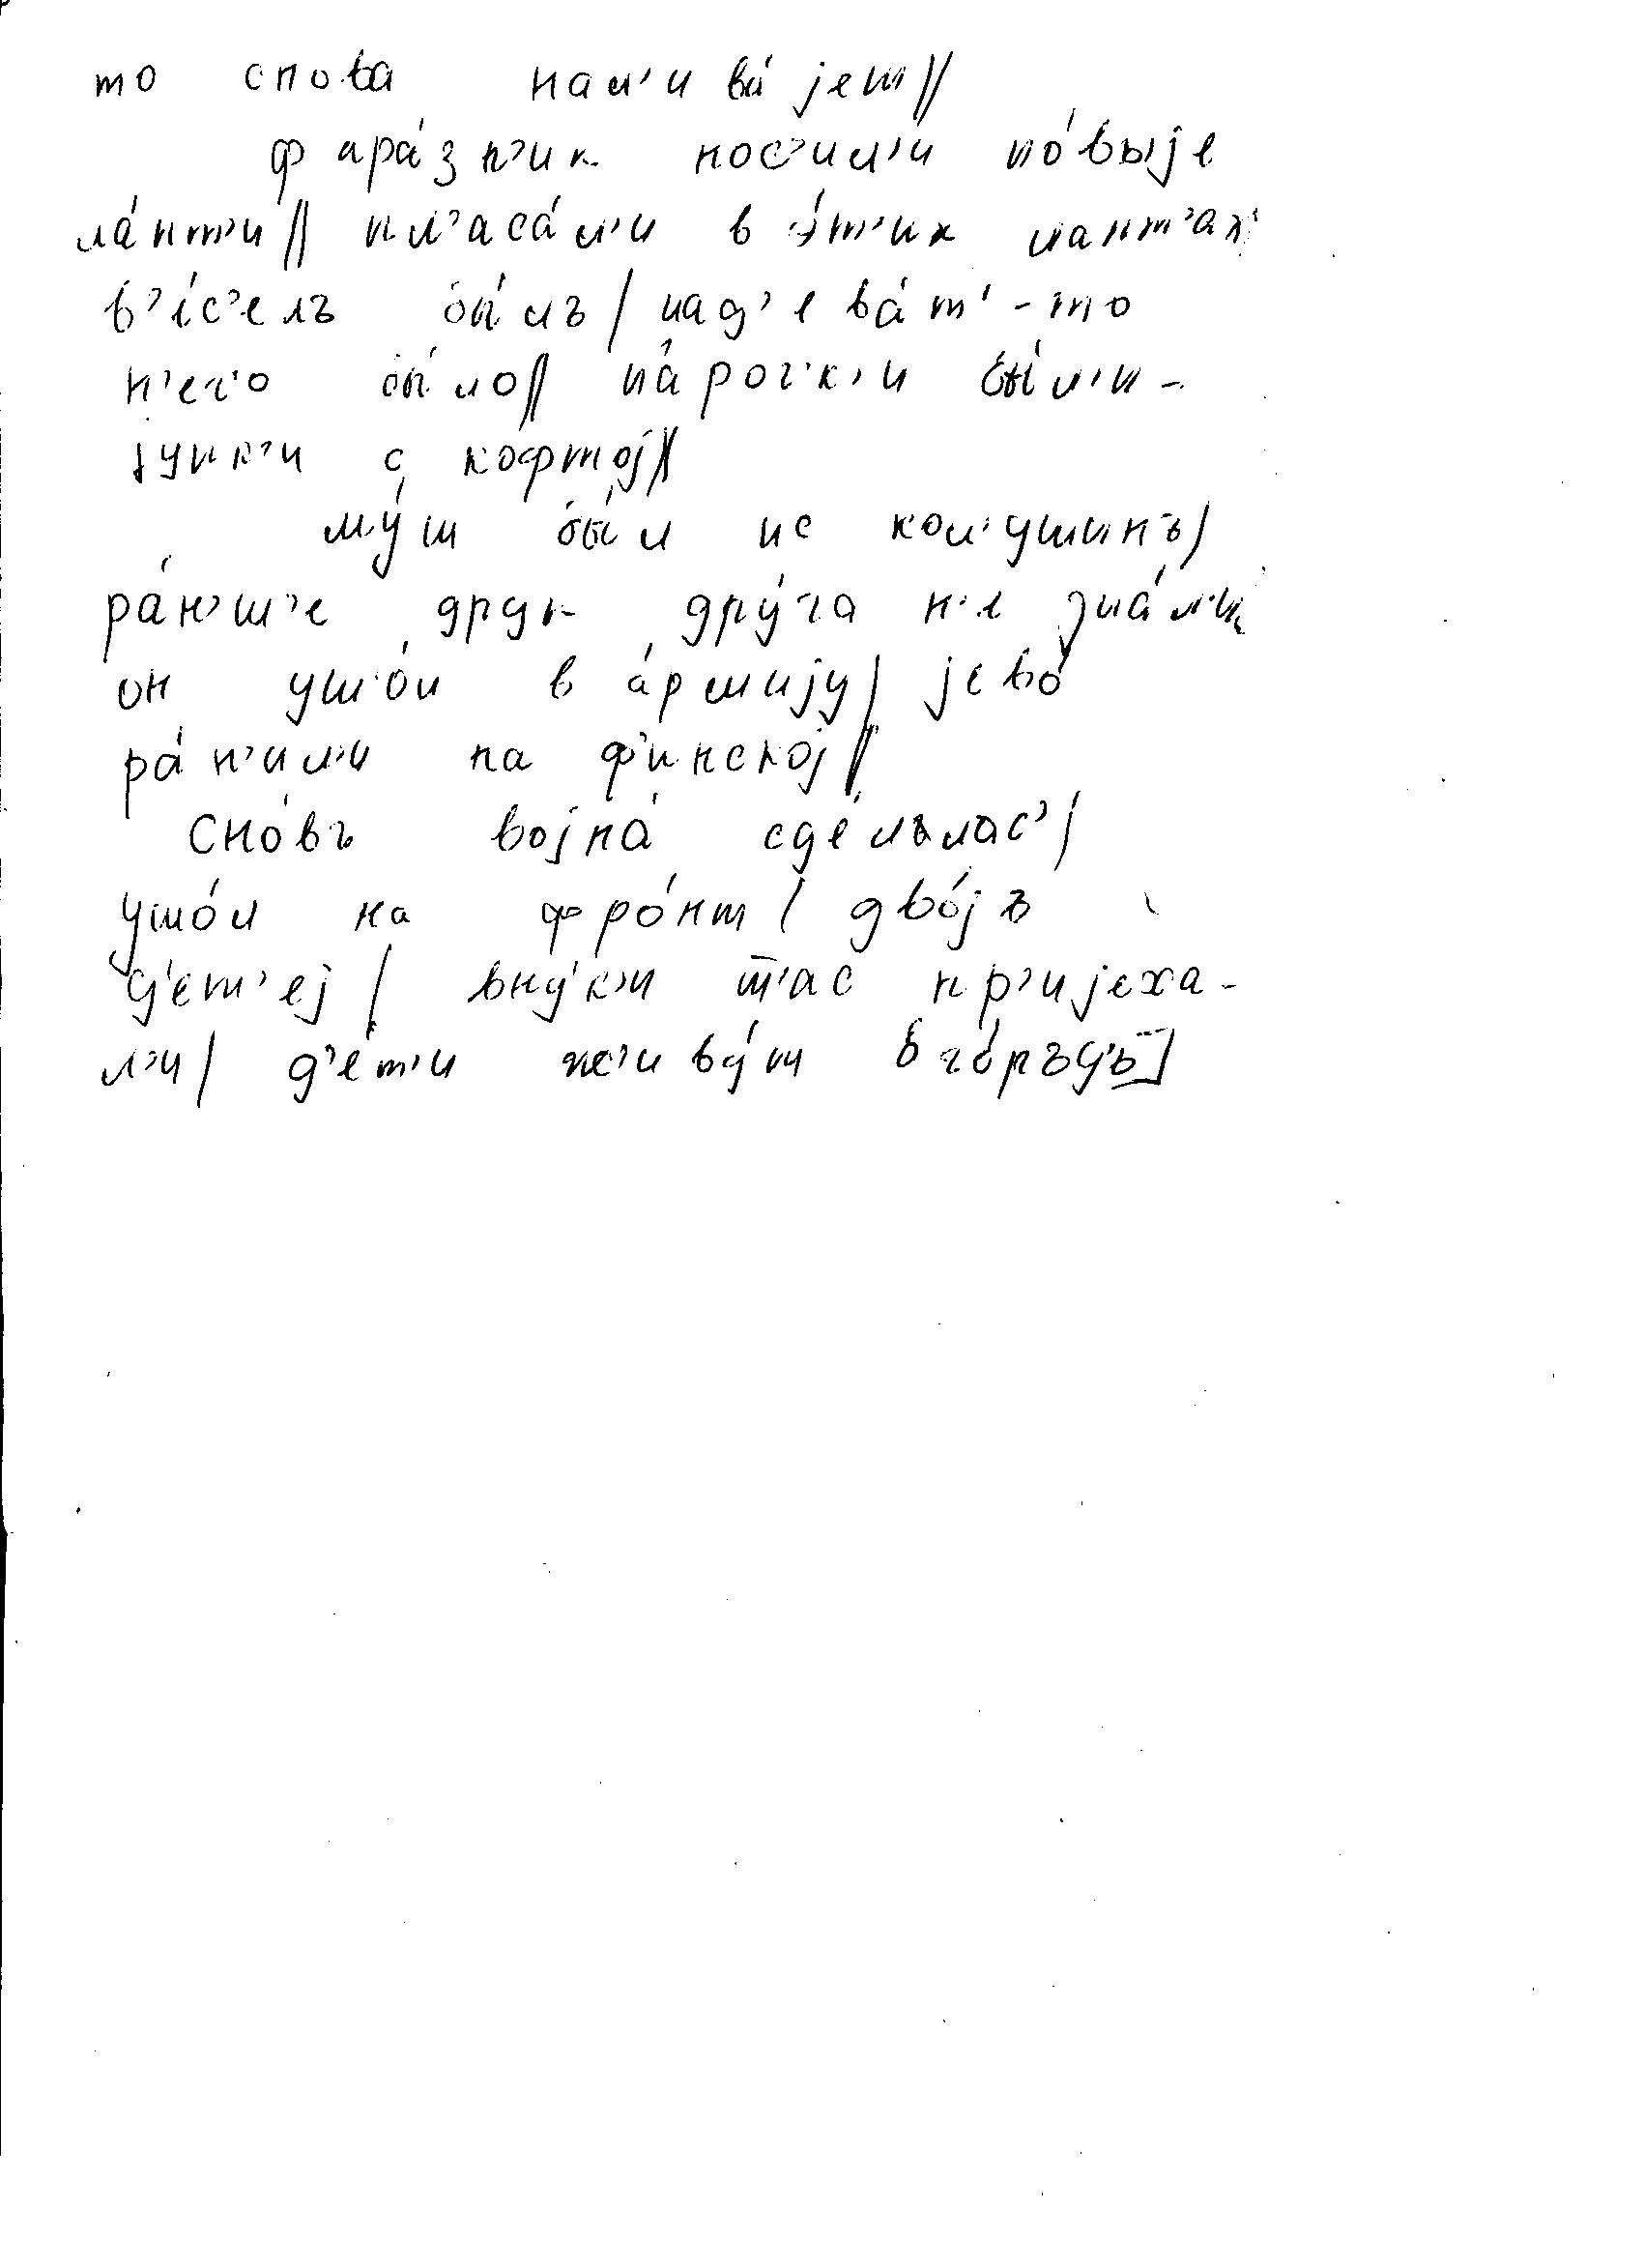 то снова нал'ива́јет//
ф пара́зн'ик нос'ил'и но́выје
ла́пт'и// пл'аса́л'и в э́т'их лапт'ах
в'е́с'елъ бы́лъ/ над'ева́т'-то
н'его бы́ло// па́роч'к'и бы́л'и -
јупк'и с кофтој//
му́ш бы́л ис кол'ушинъ/
ра́н'ш'е друк дру́га н'е зна́л'и/
он ушо́л в а́рмију/ јево́
ра́н'ил'и на ф'инској//
сно́въ војна́ сде́лълас'/
ушо́л на фро́нт/ дво́јъ
д'ет'еј/ вну́к'и т'ас пр'ијеха-
л'и/ д'е́т'и ж'иву́т в го́ръд'ъ]